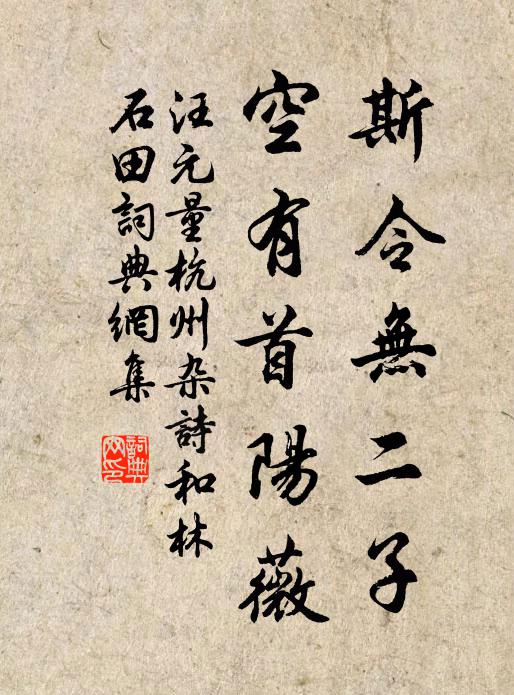 斯令無二子
空有首陽薇
汪元量杭州杂詩和林
石田詞典網集
詞典
网印